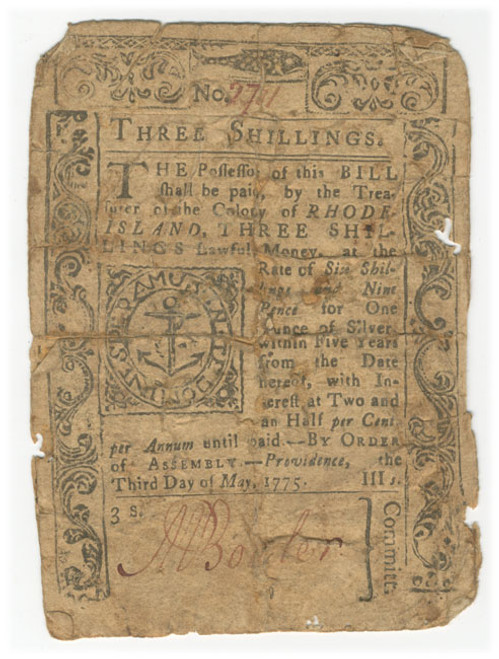 No. 2741
THREE SHILLINGS.
THE Possessor of this BILL
shall be paid, by the Trea-
surer of the Colony of RHODE
ISLAND, THREE SHIL-
LINGS Lawful Money, at the
Rate of Six Shil-
lings and Nine
Pence for One
Ounce of Silver
within Five Years
from the Date
hereof, with In-
terest at Two and
an Half per Cent
per Annum until paid.—BY ORDER
of ASSEMBLY.—Providence, the
Third Day of May, 1775. III s.
IN TE DOMINE SPERAMUS
3 s.
Committ.